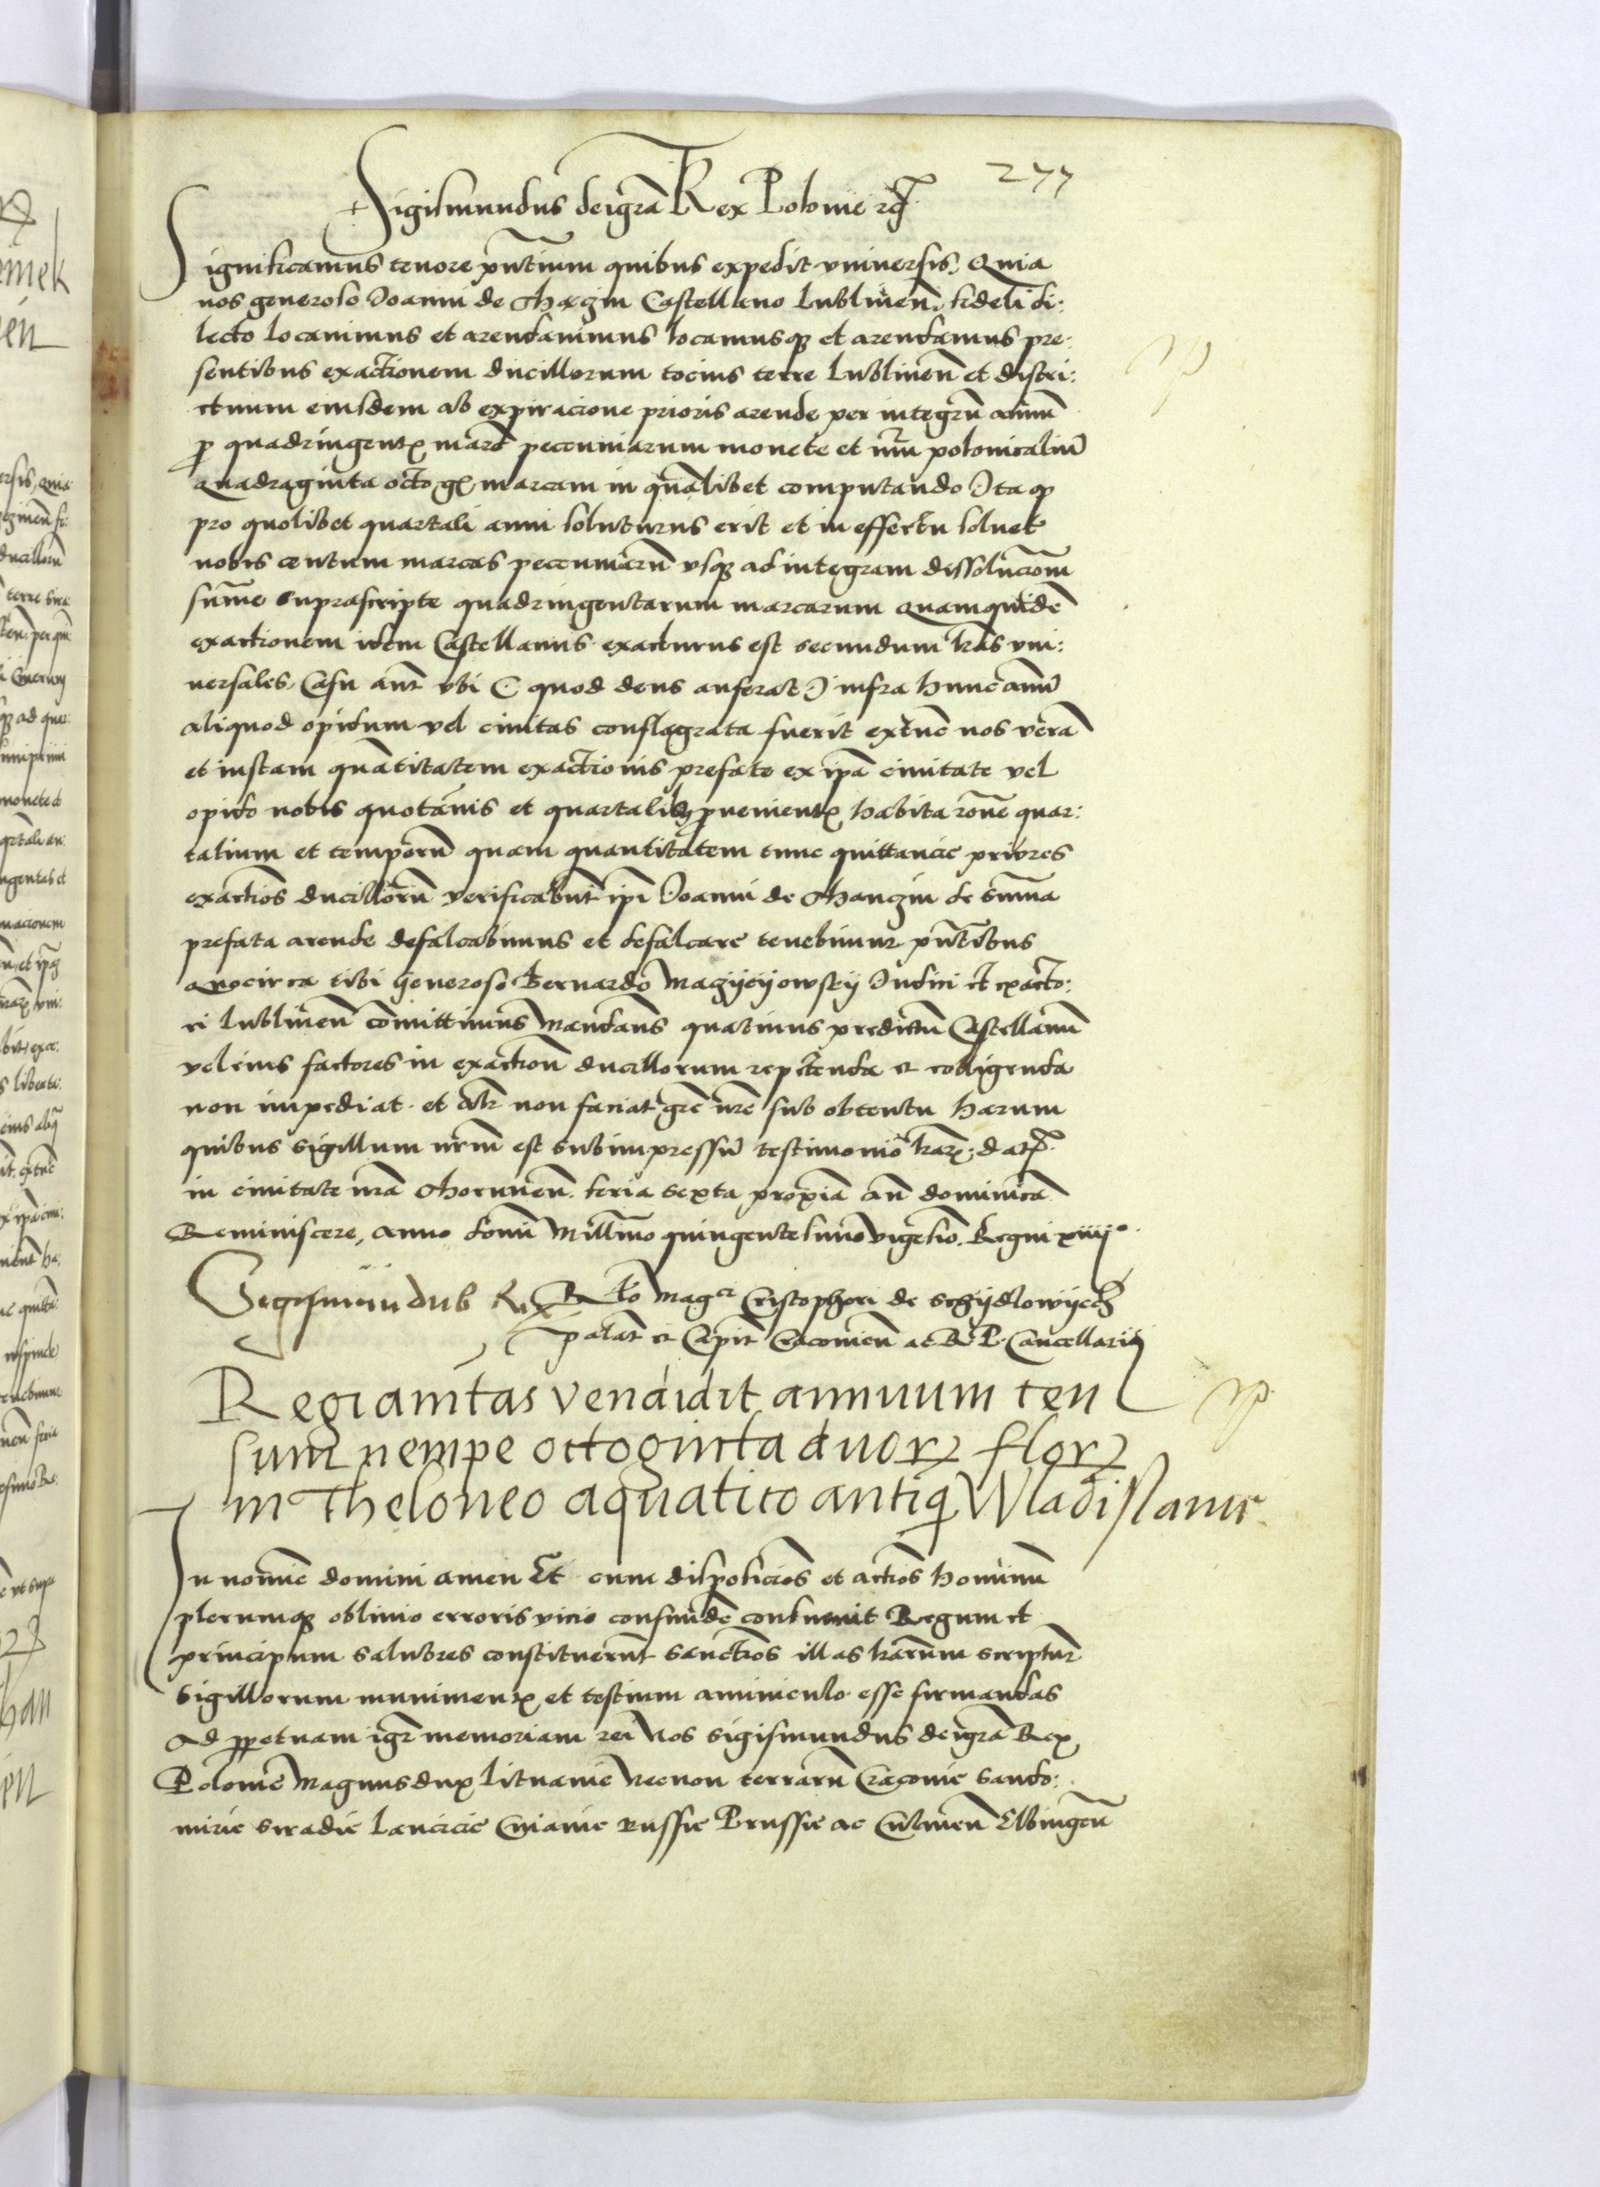 277
Sigismundus dei gra Rex Polonie rc
Significamus tenore pntium quibus expedit vniuersis, Quia
nos generoso Joanni de Thaczin Castellano Lublinen. fideli di:
lecto locauimus et arendauimus locamusq et arendamus pre:
sentibus exactionem ducillorum tocius terre Lublinen et distri:
ctuum eiusdem ab expiracione prioris arende per integru annu
p quadringent marc pecuniarum monete et nuri polonicaliu
quadraginta octo g marcam in qualibet computando Ita q
pro quolibet quartali anni soluturus erit et in effectu soluet
nobis centum marcas pecuniaru vsq ad integram dissolucom
sume suprascripte quadringentarum marcarum Quamquide
exactionem idem Castellanus exacturus est secundum lras vni:
uersales, Casu aut vbi ( quod deus auferat ) infra hunc annu
aliquod opidum vel ciuitas conflagrata fuerit extunc nos vera
et iustam quantitatem exactionis prefate ex ipa ciuitate vel
opido nobis quotannis et quartalib prouenient habita rone quar:
talium et temporu quam quantitatem tunc quittancie priores
exactios ducilloru verificabunt ipi Joanni de Thanczin de summa
prefata arende defalcabimus et defalcare tenebimur pntibus
Quocirca tibi Generoso Bernardo Maczyeyowsky Judici et exacto:
ri Lublinen comittimus Mandans quatinus predictu Castellanu
vel eius factores in exaction ducillorum repetenda et colligenda
non impediat et alr non faciat gre nre sub obtentu Harum
quibus sigillum nrm est subimpressu testimonio lrar. dat
in ciuitate nra Thorunen. feria sexta proxia an dominica
Reminiscere, anno domi Millmo quingentesimo vigesio. Regni xiiij°
Segismundus Rex Rlo Magci Cristophori de Schydlowyecz
palat et Capit Cracouien ac R. P. Cancellarij
Regia mtas vendidit annuum cen
sum nempe octoginta duor flor
in Theloneo aquatico antiq Wladislauie
In nomine domini amen Et cum disposicios et actios hominu
plerumq obliuio erroris vicio confunde consueuit Regum et
principum salubres constituerunt sanctios illas lrarum scriptur
sigillorum muniment et testium aminiculo esse firmandas
Ad ppetuam igr memoriam rei Nos Sigismundus dei gra Rex
Polonie Magnus dux Lituanie Necnon terraru Cracouie Sando:
mirie Siradie Lancicie Cuiauie Russie Prussie ac Culmen Elbingen